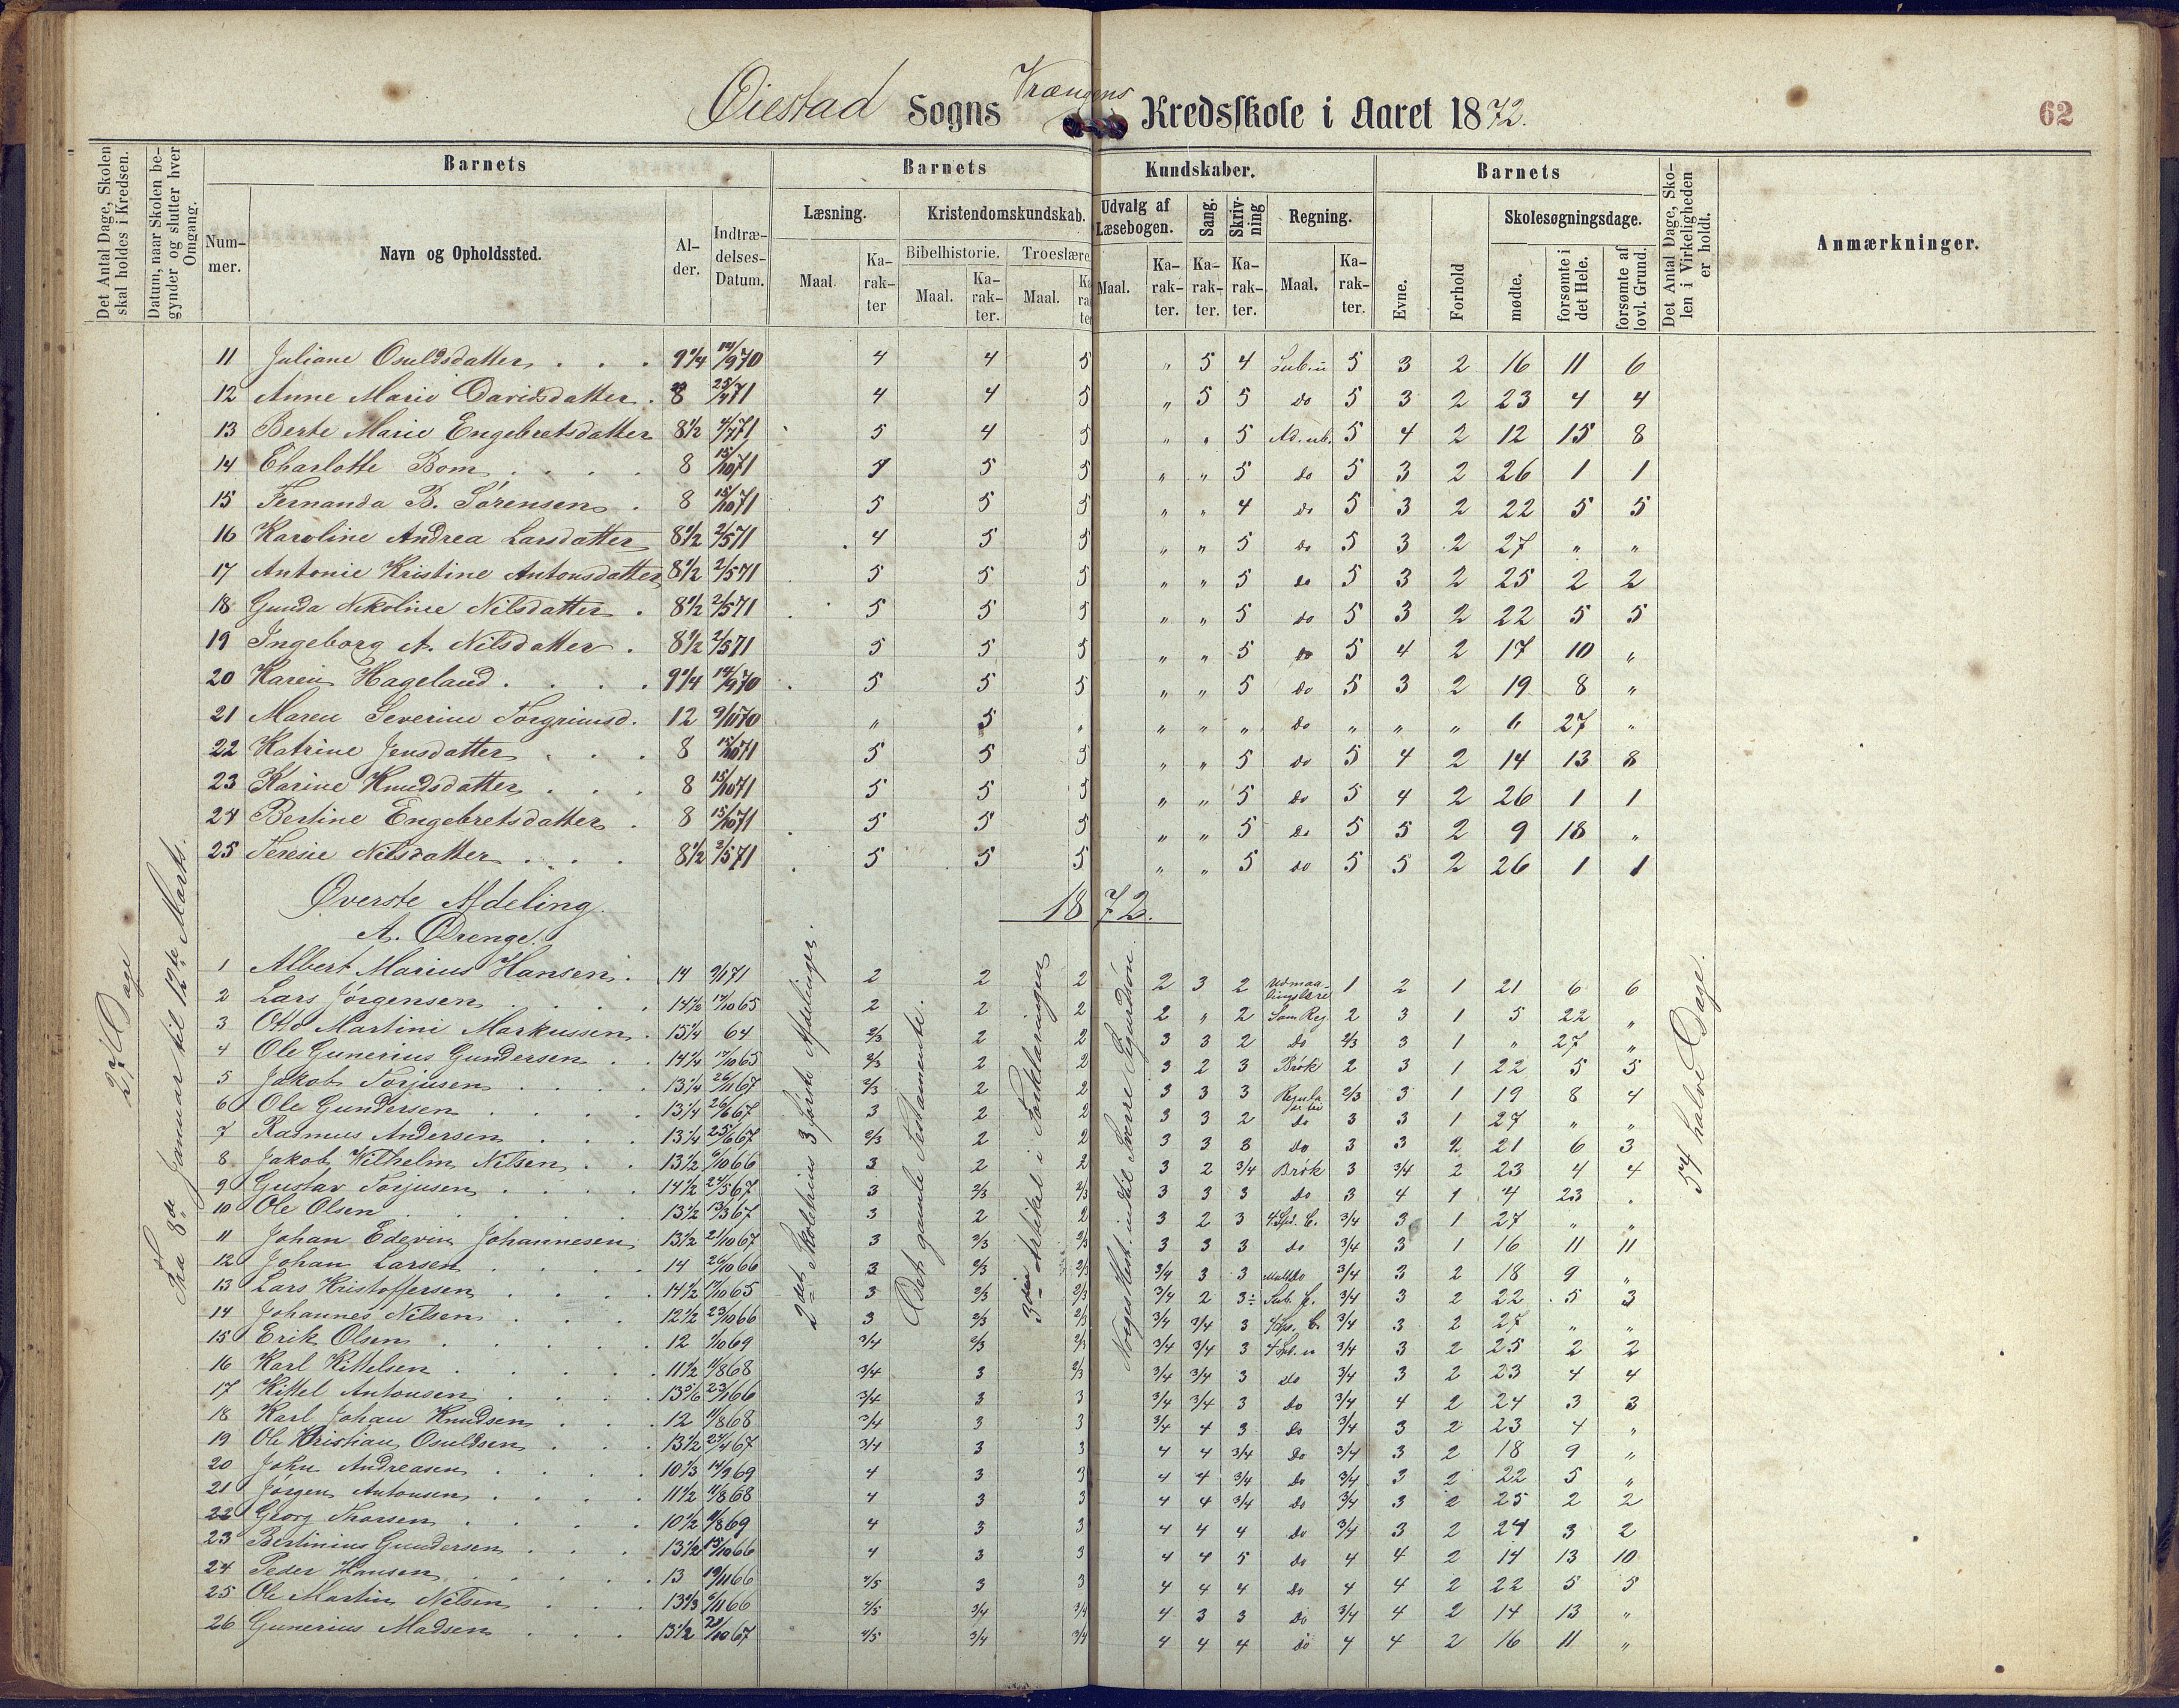 Øiestad Sogns Vrængens Kredsskole i Aaret 1872.
62
Det Antal Dage, Skolen skal holdes i Kredsen.
Datum, naar Skolen begynder og slutter hver Omgang.
Barnets
Nummer.
Navn og Opholdssted.
Alder.
Indtrædelses-Datum.
Barnets Kundskaber.
Læsning.
Maal. Karakter
Kristendomskundskab.
Bibelhistorie.
Maal. Karakter.
Troeslære
Maal.
Udvalg af Læsebogen.
Maal. Karakter.
Sang.
Karakter.
Skrivning
Karakter.
Regning.
Maal. Karakter.
Barnets
Evne.
Forhold
Skolesøgningsdage.
mødte.
forsømte i det Hele.
forsømte af lovl. Grund.
Det Antal Dage, Skolen i Virkeligheden er holdt.
Anmærkninger.
11 Juliane Osuldsdatter 9 1/4 14/9 70 4 4 5 " 5 4 5 3 2 16 11 6
12 Anne Marie Davidsdatter 8 25/4 71 4 4 5 " 5 5 do 5 3 2 23 4 4
13 Berte Marie Engebretsdatter 8 1/2 71 5 4 5 " " 5 5 4 2 12 15 8
14 Charlotte Bom 8 15/10 71 5 5 " " 5 do 5 3 2 26 1 1
15 Fernanda B. Sørensen 8 15/10 71 5 5 5 " " 4 do 5 3 2 22 5 5
16 Karoline Andrea Larsdatter 8 1/2 2/5 71 4 5 5 " " 5 do 5 3 2 27 " "
17 Antonie Kristine Antonsdatter 8 1/2 2/5 71 5 5 5 " " 5 do 5 3 2 25 2 2
18 Gunda Nikoline Nilsdatter 8 1/2 2/5 71 5 5 5 " " 5 do 5 3 2 22 5 5
19 Ingeborg A. Nilsdatter 8 1/2 2/5 71 5 5 5 " " 5 do 5 4 2 17 10 "
20 Karen Hageland 9 1/4 14/9 70 5 5 5 " " 5 do 5 3 2 19 8 "
21 Maren Severine Torgrimsd. 12 9/11 70 " 5 " " " " do " " " 6 27 "
22 Katrine Jensdatter 8 15/10 71 5 5 5 " " 5 do 5 4 2 14 13 8
23 Karine Knudsdatter 8 15/10 71 5 5 5 " " 5 do 5 4 2 26 1 1
24 Bertine Engebretsdatter 8 15/10 71 5 5 5 " " 5 do 5 5 2 9 18 "
25 Teresie Nilsdatter 8 1/2 2/5 71 5 5 5 " " 5 do 5 5 2 26 1 1
Øverste Afdeling. 1872.
A. Drenge.
27 Dage
Fra 8de Januar til 12te Marts.
2det Skoletrins 3 første Afdelinger.
Det gamle Testamente.
3die Artikel i Forklaringen
Norges Hist. indtil Sverre Sigurdsøn
54 halve Dage.
1 Albert Marius Hansen 14 9/1 71 2 2 2 2 3 2 Udmaalingslære 1 2 1 21 6 6
2 Lars Jørgensen 14 1/2 17/10 65 2 2 2 2 " 2 Sam Reg 2 3 1 5 22 "
3 Otto Martini Markussen 15 1/4 64 2/3 2 2 3 3 2 Do 2/3 3 1 " 27 "
4 Ole Gunerius Gundersen 14 1/4 17/10 65 2/3 2 2 3 2 3 Brøk 2 3 1 22 5 5
5 Jakob Torjusen 13 1/4 26/11 67 2/3 2 2 3 3 3 2/3 3 1 19 8 4
6 Ole Gundersen 13 1/4 26/6 67 3 2 2 3 3 2 do 3 3 1 27 " "
7 Rasmus Andersen 13 1/4 25/6 67 2/3 2 2 3 3 3 Do 3 3 2 21 6 3
8 Jakob Wilhelm Nilsen 13 1/2 /10 66 3 2 2 3 2 3/4 Brøk 3 3/4 2 23 4 4
9 Gustav Torjusen 14 1/2 24/5 67 3 2/3 2/3 3 3 3 do 3 4 1 4 23 "
10 Ole Olsen 13 1/2 13/3 67 3 2 2 3 2 3 4 Spd. C. 3/4 3 1 27 " "
11 Johan Edevin Johannesen 13 1/2 21/10 67 3 2/3 2/3 3 3 3 do 3/4 3 1 16 11 11
12 Johan Larsen 14 26/10 66 3 2/3 2/3 3/4 3 3 3/4 3 2 18 9 "
13 Lars Kristoffersen 14 1/2 17/10 65 3 2/3 2/3 3/4 2 3÷ 3/4 3 2 22 5 3
14 Johannes Nilsen 12 1/2 23/10 66 3 2/3 2/3 3/4 3/4 3 3/4 3 2 27 " "
15 Erik Olsen 12 /10 69 3/4 2/3 2/3 3/4 3/4 3 3/4 3 2 25 2 2
16 Karl Kittelsen 11 1/2 11/8 68 3/4 3 2/3 3/4 3/4 3 do 3/4 3 2 23 4 4
17 Kittel Antonsen 13 5/6 23/1 66 3/4 3 3 3/4 3/4 3 do 3/4 4 2 24 3 3
18 Karl Johan Knudsen 12 11/8 68 3/4 3 3 3/4 4 3 do 3/4 3 2 23 4 "
19 Ole Kristian Osuldsen 13 1/2 24/4 67 3/4 3 3 4 4 3/4 do 3/4 3 2 18 9 "
20 John Andreasen 10 1/3 14/9 69 4 3 3 4 4 3/4 do 3/4 3 2 22 5 "
21 Jørgen Antonsen 11 1/2 11/8 68 4 3 3 4 4 3/4 do 3/4 3 2 25 2 2
22 Georg Thorsen 10 1/2 11/8 69 4 3 3 4 4 4 do 3/4 3 2 24 3 2
23 Bertinius Gundersen 13 1/2 15/10 66 4 3 3 4 4 5 do 4 4 2 14 13 10
24 Peder Hansen 13 19/11 66 4/5 3 3 4 4 4 do 4 4 2 22 5 5
25 Ole Martin Nilsen 13 1/3 /11 66 4/5 3/4 3/4 4 3 3 do 3/4 4 2 14 13 "
26 Gunerius Madsen 13 1/2 21/10 67 4/5 3/4 3/4 4 4 4 do 4 4 2 16 11 "